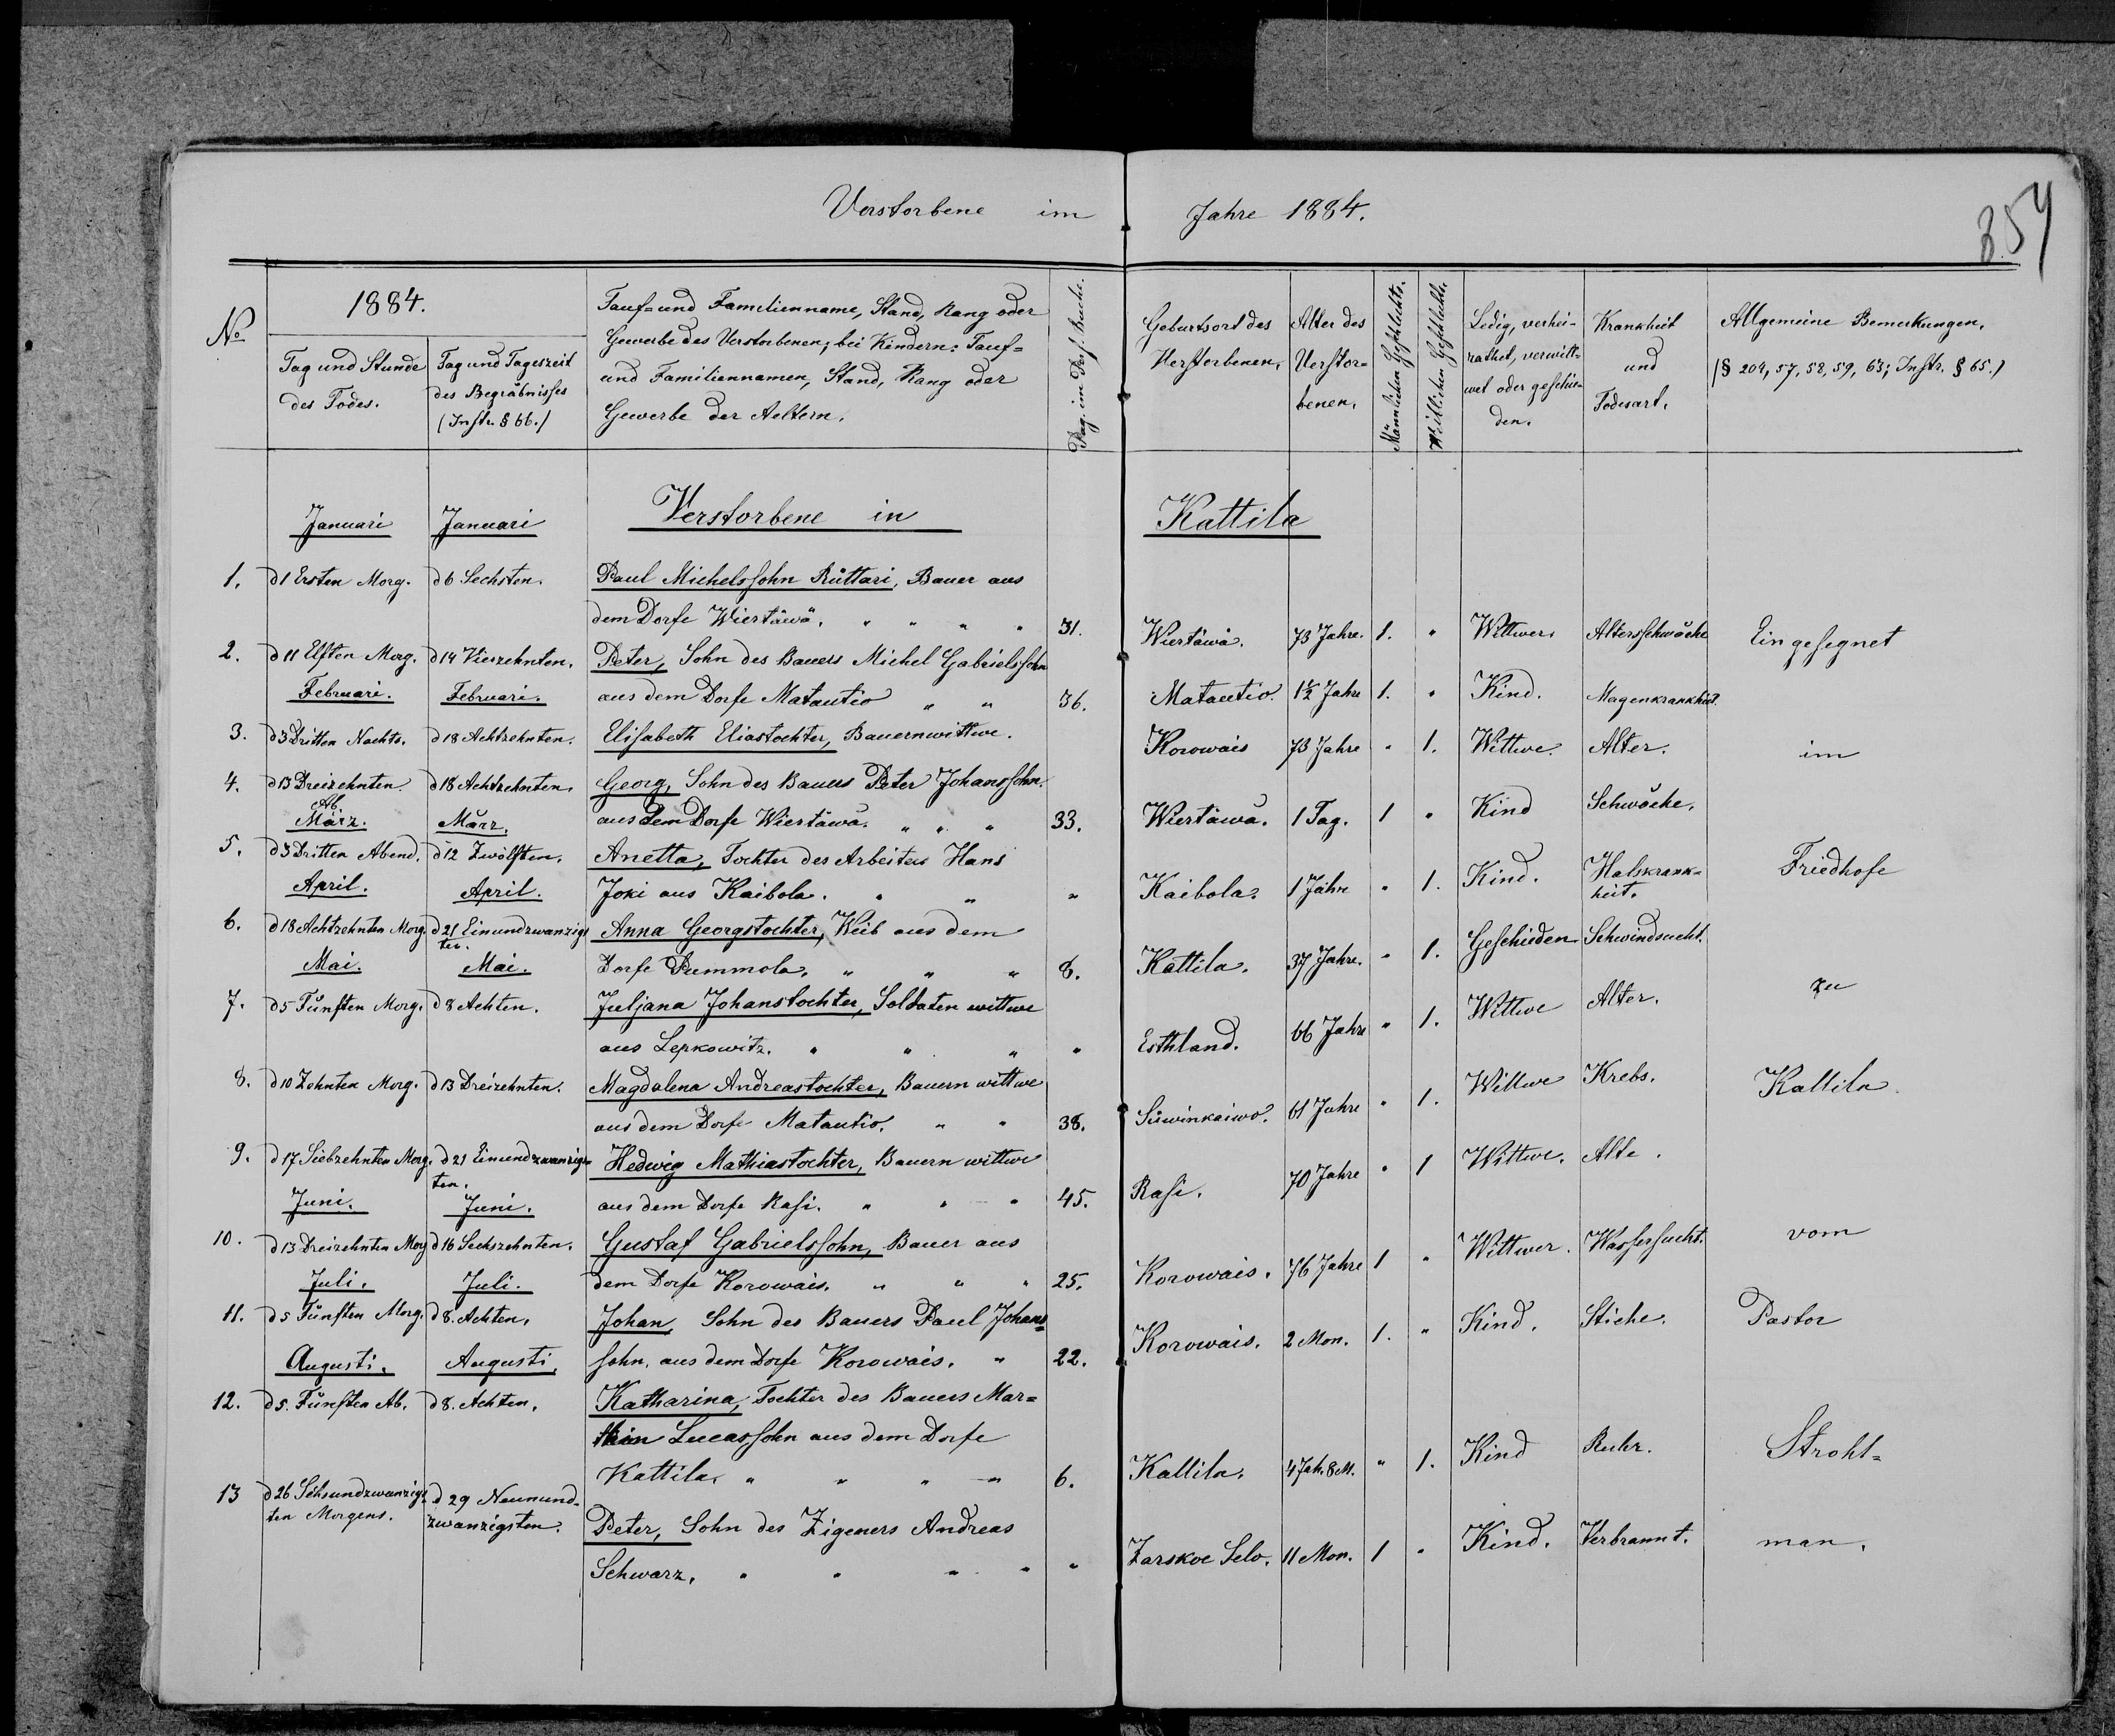 Verstorbene im Jahre 1884.
354
No
1884.
Tag und Stunde des Todes.
Tag und Tageszeit des Begräbnisses (Instr. § 66.)
Tauf= und Familienname, Stand, Rang oder
Gewerbe des Verstorbenen; bei Kindern: Tauf=
und Familiennamen, Stand, Rang oder
Gewerbe der Aeltern.
Pag. im Pers. Buche.
Geburtsort des Verstorbenen.
Alter des Verstorbenen.
Männlichen Geschlechts.
Weiblichen Geschlechts.
Ledig, verheirathet, verwittwet oder geschieden.
Krankheit und Todesart.
Allgemeine Bemerkungen.
(§ 204, 57, 58, 59, 63; Instr. § 65.)
Januari Januari Verstorbene in Kattila
1. d 1 Ersten Morg. d 6 Sechsten. Paul Michelssohn Rüttari, Bauer aus
dem Dorfe Wiertäwä. " " " " 31. Wiertäwä. 73 Jahre. 1. " Wittwer. Altersschwäche Eingesegnet
2. d 11 Elften Morg. d 14 Vierzehnten. Peter, Sohn des Bauers Michel Gabrielssohn
Februari. Februari. aus dem Dorfe Matautio " " 36. Matautio. 1½ Jahre 1. " Kind. Magenkrankheit.
3. d 3 Dritten Nachts. d 18 Achtzehnten. Elisabeth Eliastochter, Bauernwittwe. Korowais 73 Jahre " 1. Wittwe. Alter. im
4. d 13 Dreizehnten Ab. d 18 Achtzehnten. Georg, Sohn des Bauers Peter Johanssohn.
März. März. aus dem Dorfe Wiertäwä. " " " 33. Wiertäwä. 1 Tag. 1 " Kind Schwäche.
5. d 3 Dritten Abend. d 12 Zwölften. Anetta, Tochter des Arbeiters Hans
April. April. Joki aus Kaibola. " " " Kaibola. 1 Jahre " 1. Kind. Halskrank=heit. Friedhofe
6. d 18 Achtzehnten Morg. d 21 Einundzwanzigsten. Anna Georgstochter, Weib aus dem
Mai. Mai. Dorfe Pummola. " " " 8. Kattila. 37 Jahre. " 1. Geschieden Schwindsucht.
7. d 5 Fünften Morg. d 8 Achten. Juljana Johanstochter, Soldaten wittwe
aus Lepkowitz. " " " " Esthland. 66 Jahre " 1. Wittwe Alter. zu
8. d 10 Zehnten Morg. d 13 Dreizehnten. Magdalena Andreastochter, Bauern wittwe
aus dem Dorfe Matautio. " " 38. Süwinkaiwo. 61 Jahre " 1. Wittwe Krebs. Kattila
9. d 17 Siebzehnten Morg. d 21 Einundzwanzigs=ten. Hedwig Mathiastochter, Bauern wittwe
Juni. Juni. aus dem Dorfe Rasi. " " " 45. Rasi. 70 Jahre " 1 Wittwe. Alte.
10. d 13 Dreizehnten Morg d 16 Sechszehnten. Gustaf Gabrielssohn, Bauer aus
Juli. Juli. dem Dorfe Korowais. " " " 25. Korowais. 76 Jahre 1 " Wittwer. Wassersucht. vom
11. d 5 Fünften Morg. d 8. Achten. Johan, Sohn des Bauers Paul Johans=
Augusti. Augusti. sohn. aus dem Dorfe Korowais. " 22. Korowais. 2 Mon. 1. " Kind. Stiche. Pastor
12. d 5. Fünften Ab. d 8. Achten. Katharina, Tochter des Bauers Mar=
thin Lucassohn aus dem Dorfe
Kattila. " " " " 6. Kattila. 4 Jah. 8 M. " 1. Kind Ruhr. Strohl=
13 d 26 Sechsundzwanzigs=ten Morgens. d 29 Neunund=zwanzigsten. Peter, Sohn des Zigeners Andreas
Schwarz. " " " " " Zarskoe Selo. 11 Mon. 1 " Kind. Verbrannt. man.